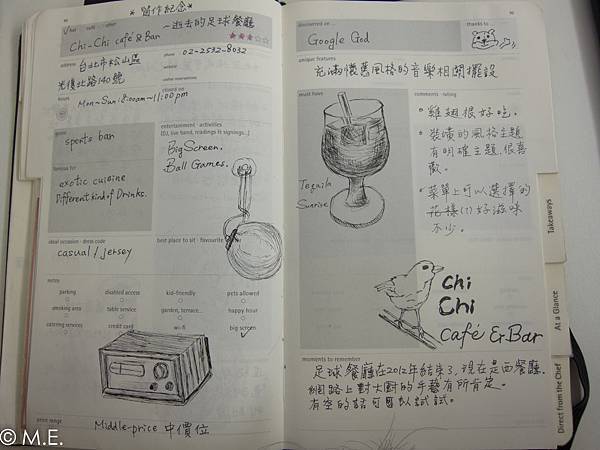 * 留作紀念 *
~逝去的足球餐廳
bar
cafe
other
Chi-Chi café & Bar
★★★☆☆
address
台北市松山區
光復北路140號
phone
02-2532-8032
website
online reservations
hours
Mon~Sun 18:00am~11:00pm
closed on
genre
sports bar
entertainment · activities
(DJ, live band, readings & signings...)
Big Screen.
Ball Games.
famous for
exotic cuisine
Different kind of Drinks.
ideal occasion · dress code
casual / jersey
best place to sit · favourite
notes
parking
disabled access
kid-friendly
pets allowed
smoking area
table service
garden, terrace...
happy hour
catering services
credit card
wi-fi
big screen
price range
Middle-price 中價位
discovered on ...
Google God
thanks to ...
unique features
充滿懷舊風格的音樂相關擺設
must have
Tequila
Sunrise
comments · rating
雞翅很好吃.
裝潢的風格主題
有明確主題.很喜
歡.
菜單上可以選擇的
花樣(?)好滋味
不少.
Chi
Chi
Café & Bar
moments to remember
足球餐廳在2012年結束了.現在是西餐廳.
網路上對大廚的手藝有所肯定。
有空的話可以試試。
Takeaways
At a Glance
Direct from the Chef
© M.E.